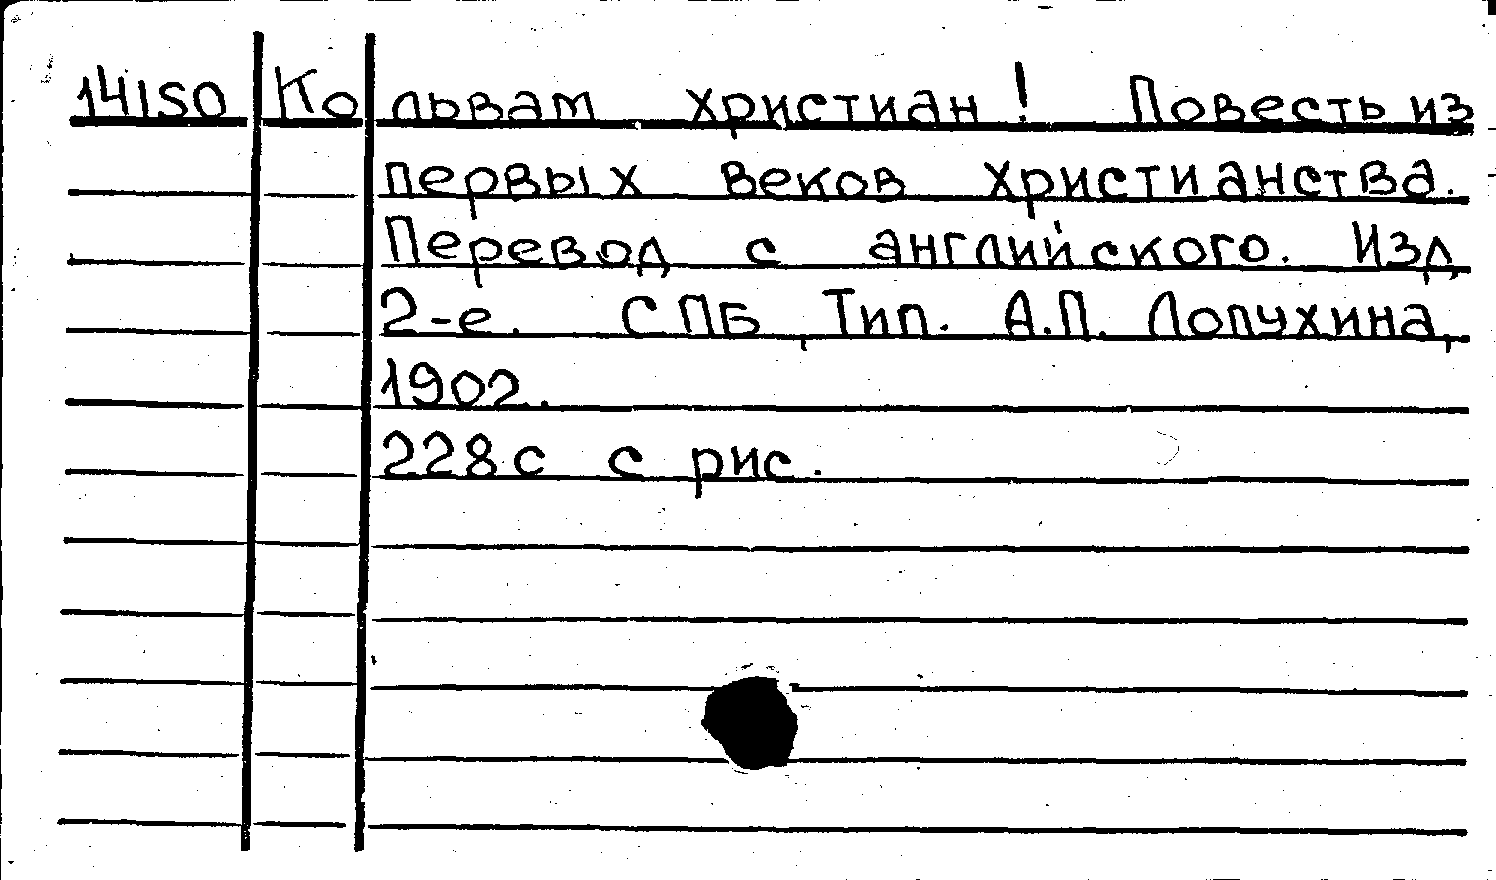 14150 Ко львам христиан! Повесть из
первых веков христианства.
Перевод с английского. Изд.
2-е. СПБ, Тип. А.П. Лопухина,
1902.
228с с рис.